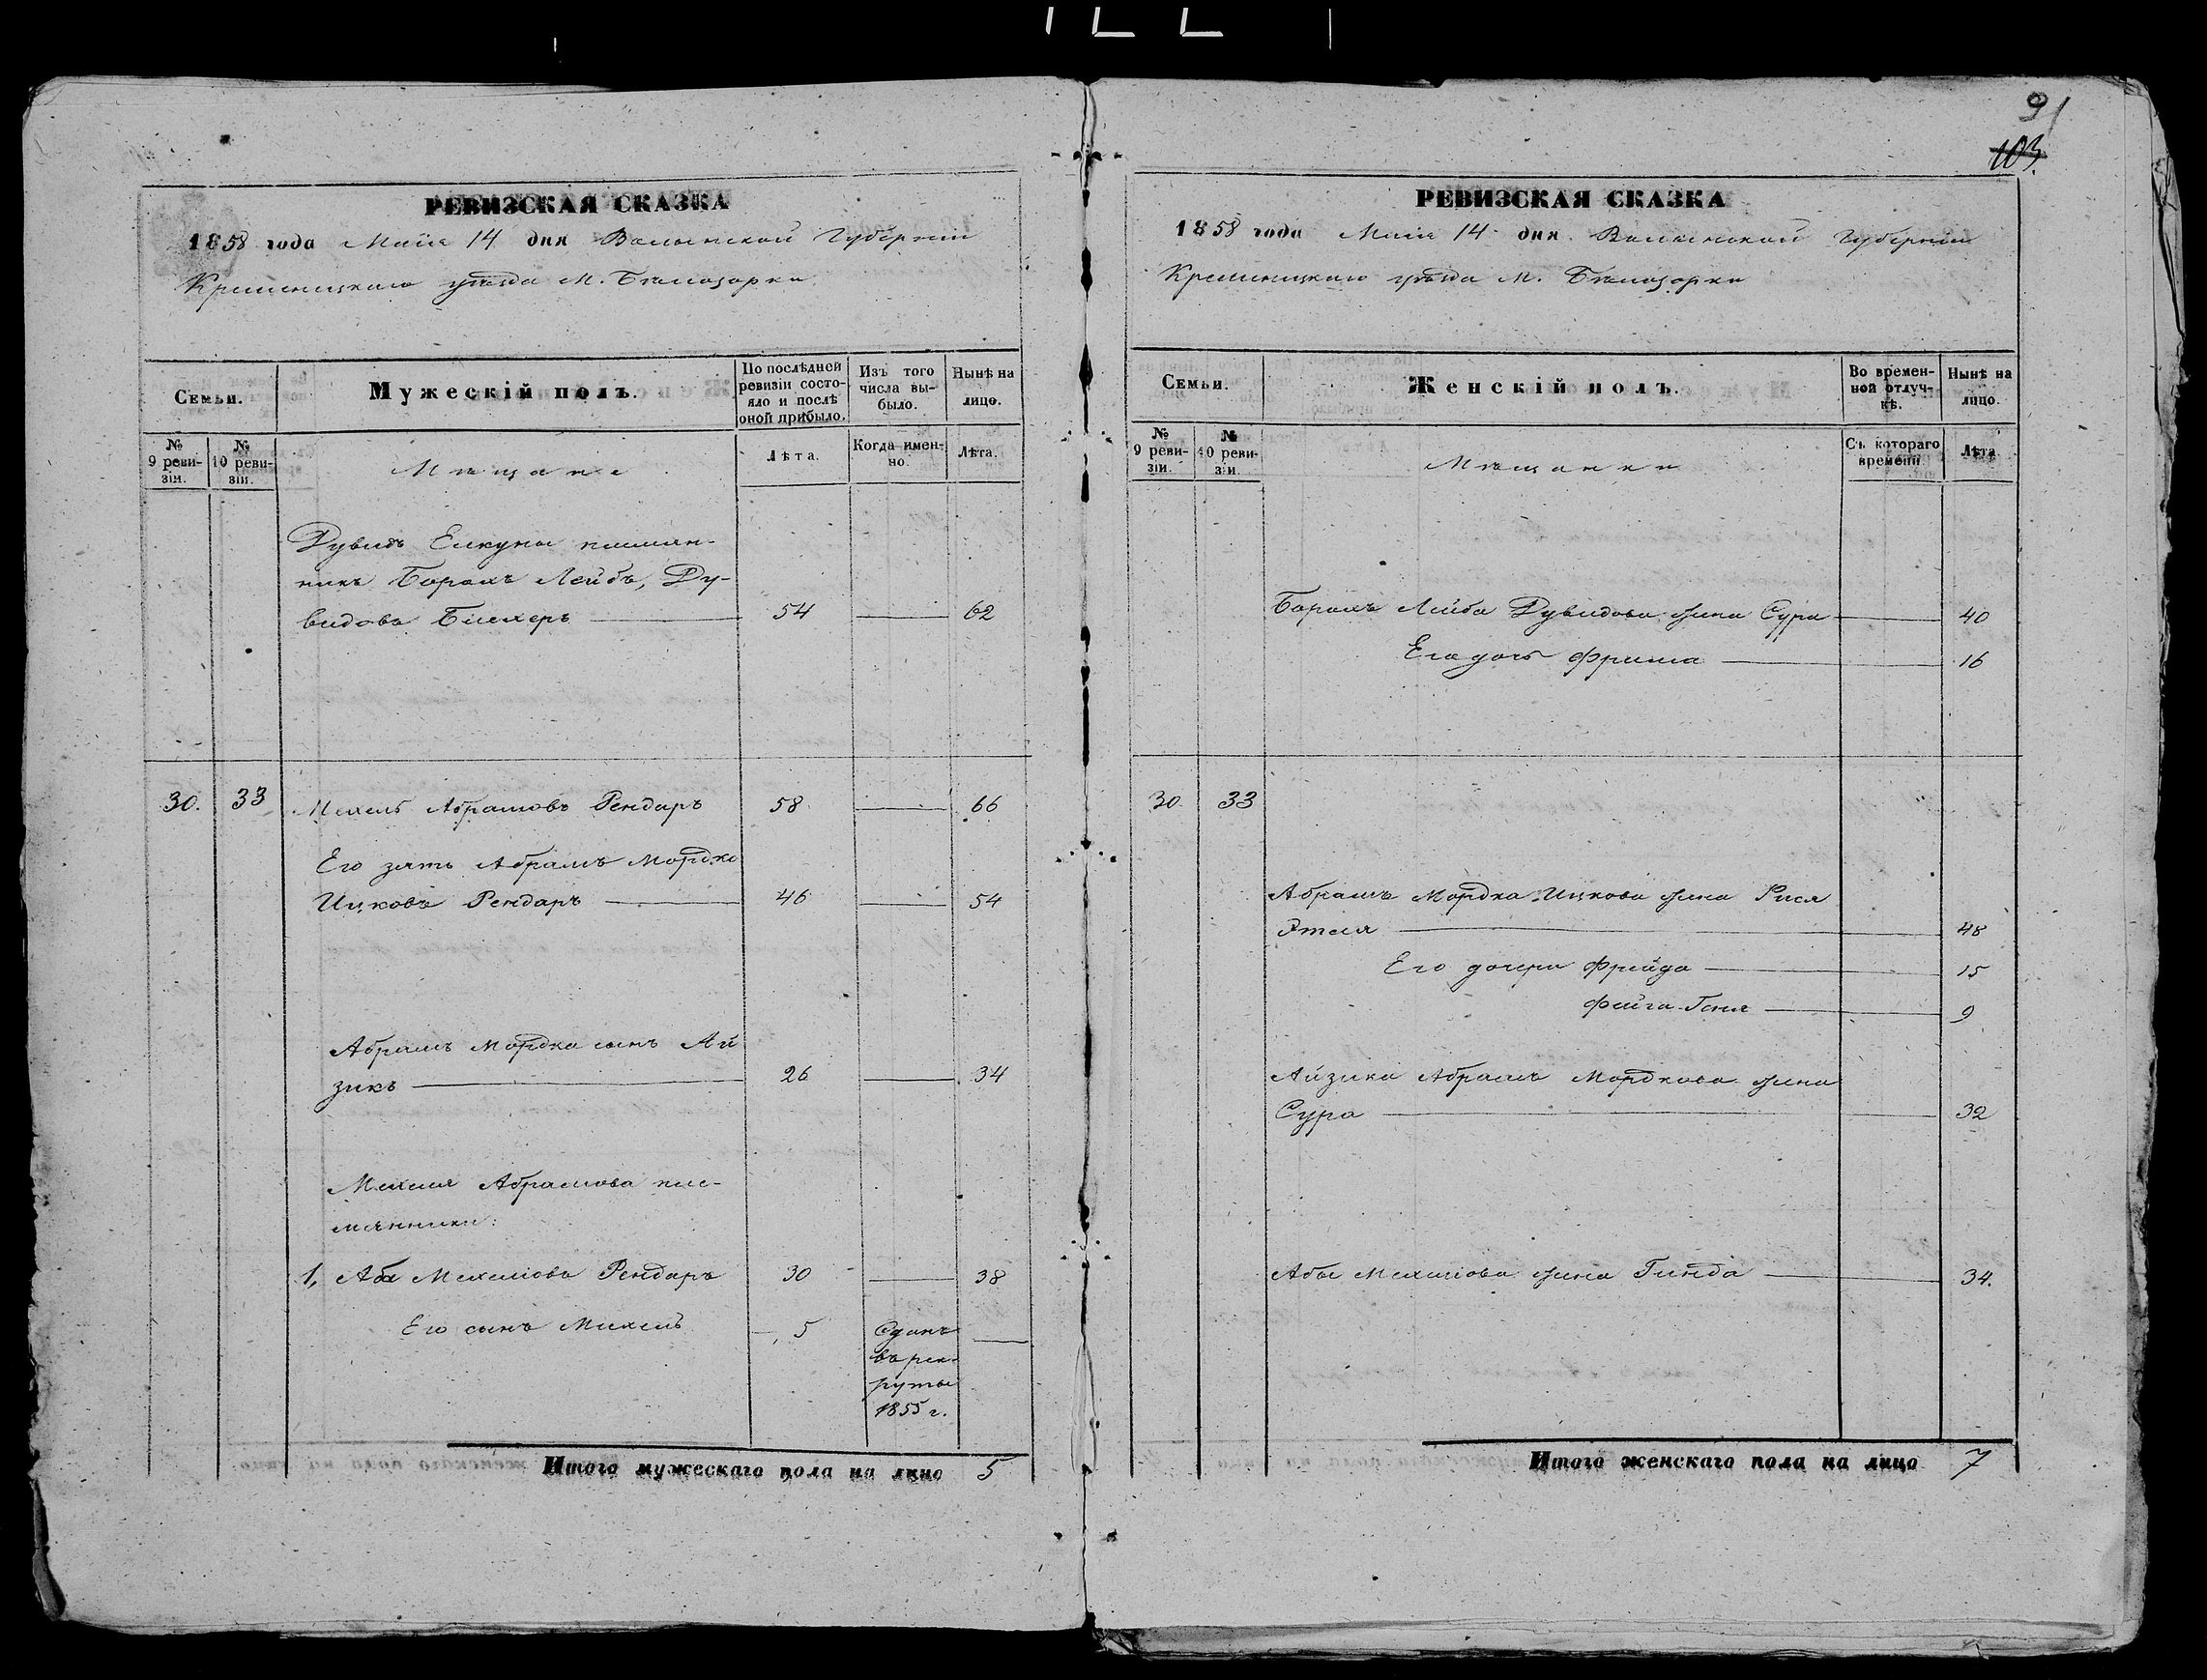 91
103.
РЕВИЗСКАЯ СКАЗКА
1858 года Маія 14 дня Волынской Губерніи
Кременецкаго уѣзда м. Бѣлозорки
Семьи.
Мужескій полъ.
По послѣдней ревизіи состояло и послѣ оной прибыло.
Изъ того числа выбыло.
Нынѣ на лицо.
№ 9 ревизіи.
№ 10 ревизіи.
Мѣщане
Лѣта.
Когда именно.
Лѣта.
Дувидъ племян-
никъ Борохъ Лейбъ, Ду-
видовъ 54 62
30. 33 Мехель Абрамовъ Рендаръ 58 66
Его зять Абрамъ Мордко
Ицковъ Рендаръ 46 54
Абрамъ Мордка сынъ Ай
зикъ 26 34
Мехеля Абрамова пле-
мянники:
1, Аба Мехелювъ Рендаръ 30 38
Его сынъ Мехель 5 Сданъ
въ рек-
руты
1855 г.
Итого мужескаго пола на лицо 5
РЕВИЗСКАЯ СКАЗКА
1858 года Маія 14 дня Волынской Губерніи
Кременецкаго уѣзда м. Бѣлозорки
Семьи.
Женскій полъ.
Во временной отлучкѣ.
Нынѣ на лицо.
№ 9 ревизіи.
№ 10 ревизіи.
Мѣщанки
Съ котораго времени
Лѣта
Борохъ Лейба Дувидова жена Сура 40
Его дочь Фрима 16
30. 33
Абрамъ Мордка Ицкова жена Рися
Этля 48
Его дочери Фрейда 15
Фейга-Геня 9
Айзика Абрамъ Мордкова жена
Сура 32
Абы Мехелюва жена Гинда 34.
Итого женскаго пола на лицо 7